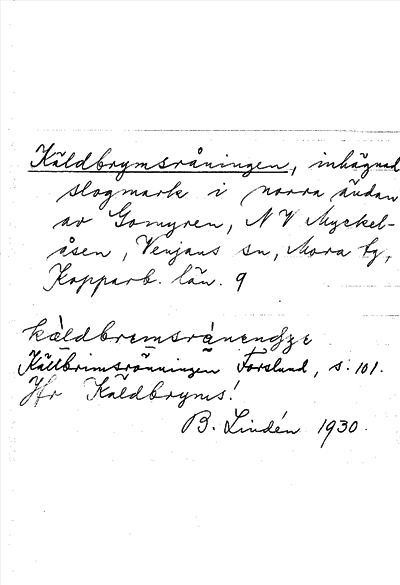 Käldbrymsråningen, inhägnad
slogmark i norra ändan
av Gomyren, N V Myckel-
åsen, Venjans sn, Mora tg,
Kopparb. län. 9
Källbrimsrönningen Forslund, s. 101.
Jfr Käldbryms!
B. Lindén 1930.